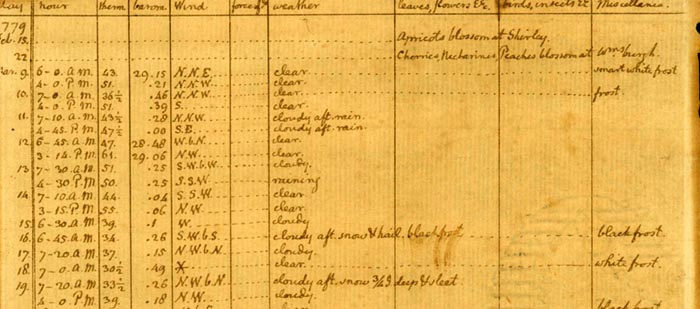 day hour therm barom. Wind forces weather leaves, flowers &c. birds, insects &c Miscellanea.
1779
Feb. 15. Apricots blossom at Shirley.
22 Cherries Nectarines Peaches blossom at Wmsburgh.
Mar. 9. 6-0. A.M. 43. 29.15 N.N.E. clear. smart white frost
4-0. P.M. 51. .21 N.N.W. clear.
10. 7-0. A.M. 36½ .46 N.N.W. clear. frost.
4-0. P.M. 51. .39 S. clear.
11. 7-10. A.M. 43½ .28 N.N.W. cloudy aft. rain.
4-45. P.M. 47½ .00 S.E. cloudy aft. rain.
12. 6-45. A.M. 47. 28.48 W.b.N. clear.
3-14. P.M. 61. 29.06 N.W. clear.
13. 7-30. A.M. 51. .25 S.W.b.W. cloudy.
4-30. P.M. 50. .25 S.S.W. raining
14. 7-10. A.M. 44. .04 S.S.W. clear
3-15. P.M. 55. .06 N.W. clear.
15. 6-30. A.M. 39. .1 W. cloudy
16. 6-45. A.M. 34. .26 S.W.b.S. cloudy aft. snow & hail. black frost black frost.
17. 7-20. A.M. 37. .15 N.W.b.N. cloudy.
18. 7-0. A.M. 30½ .49 clear. white frost.
19. 7-20. A.M. 33½ .26 N.W.b.N. cloudy aft. snow ¾ I. deep & sleet
4-0. P.M. 39. .18 N.W. cloudy.
black frost